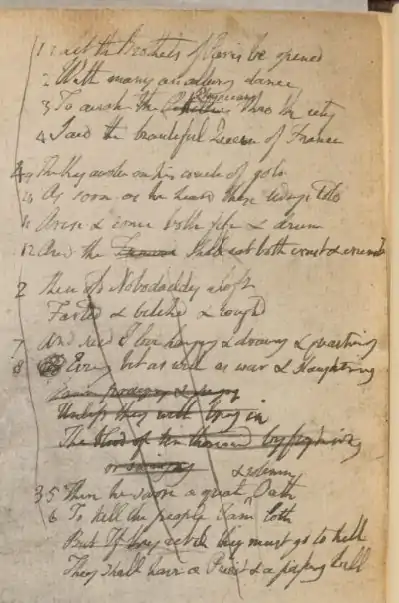 1 Let the Brothels of Paris be opened
2 With many an alluring dance
3 To awake the Physicians thro the city
4 Said the beautiful Queen of France
9 The King awoke on his couch of gold
10 As soon as he heard these tidings told
11 Arise & come both fife & drum
12 And the Famine shall eat both crust & crumb
2 Then old Nobodaddy aloft
Farted & belchd & coughd
7 And said I love hanging & drawing & quartering
8 Every bit as well as war & slaughtering
Damn praying & singing
Unless they will bring in
The blood of ten thousand by fighting
or swinging
3 5 Then he swore a great & solemn Oath
6 To kill the people I am loth
But If they rebel they must go to hell
They shall have a Priest & a passing bell